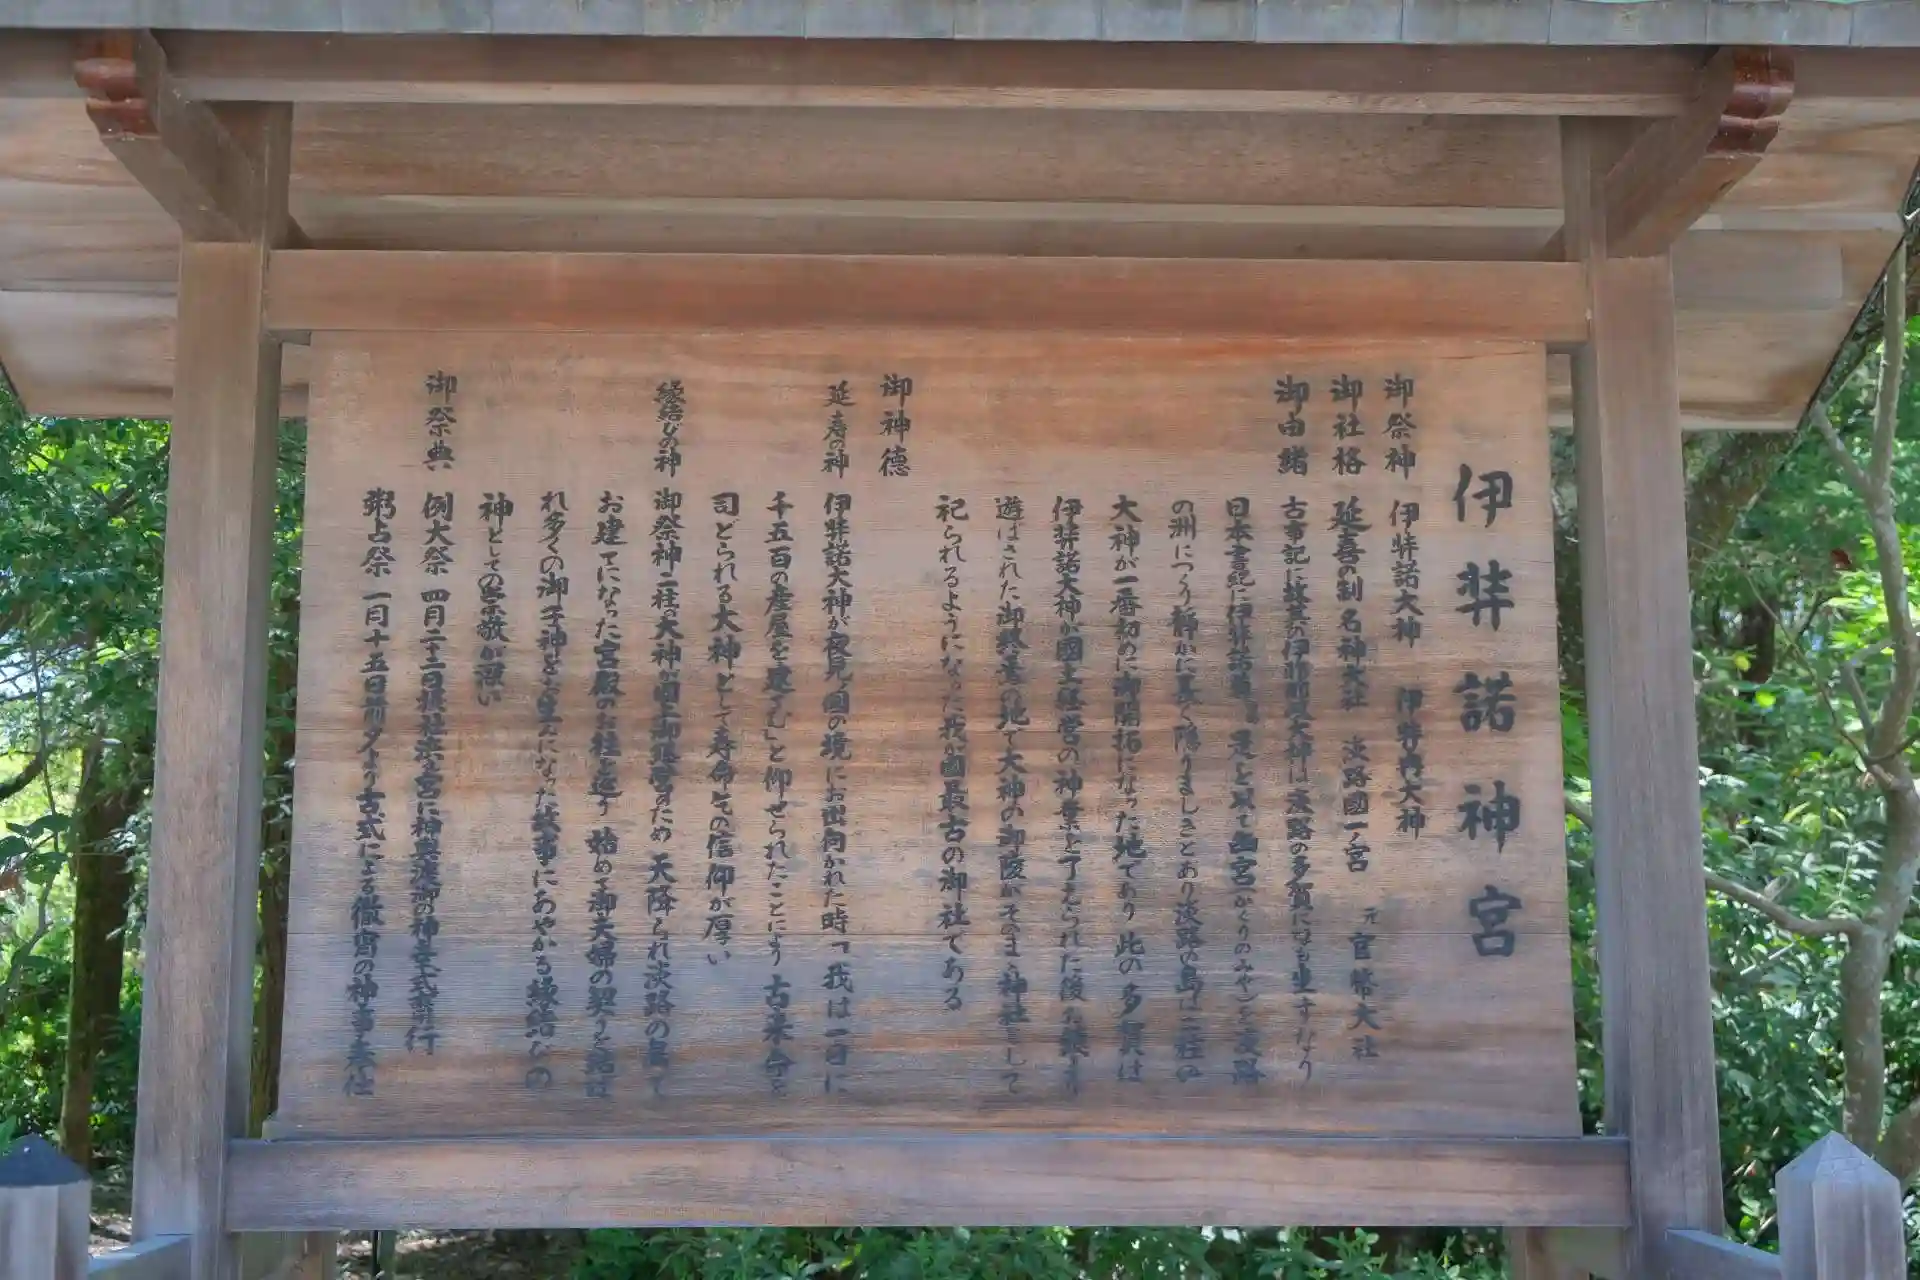 伊弉諾神宮
御祭神 伊弉諾大神 伊弉冉大神
御社格 延喜の制 名神大社 淡路國一ノ宮 元官幣大社
御由緒 古事記に故其の伊耶那岐大神は淡路の多賀になも坐すなり
日本書紀に伊弉諾尊 是を以て幽宮(かくりのみや)を淡路
の洲につくり静かに長く隠りましきとあり淡路の島は二柱の
大神が一番初めに御開拓になった地であり此の多賀は
伊弉諾大神が國土経営の神業を了えられた後お鎮まり
遊ばされた御終焉の地で大神の御陵がそのまゝ神社として
祀られるようになった我が國最古の御社である
御神徳
延寿の神 伊弉諾大神が夜見の國の境にお出向かれた時「我は一日に
千五百の産屋を建てむ」と仰せられたことにより古来命を
司どられる大神として寿命乞の信仰が厚い
縁結びの神 御祭神二柱の大神が國土御経営のため天降られ淡路の島で
お建てになった宮殿のお柱を巡り始めて御夫婦の契りを結ば
れ多くの御子神をお生みになった故事にあやかる縁結びの
神としての崇敬が深い
御祭典 例大祭 四月二十二日摂社浜ノ宮に神輿渡御の神幸式斎行
粥占祭 一月十五日前夕より古式による徹宵の神事奉仕